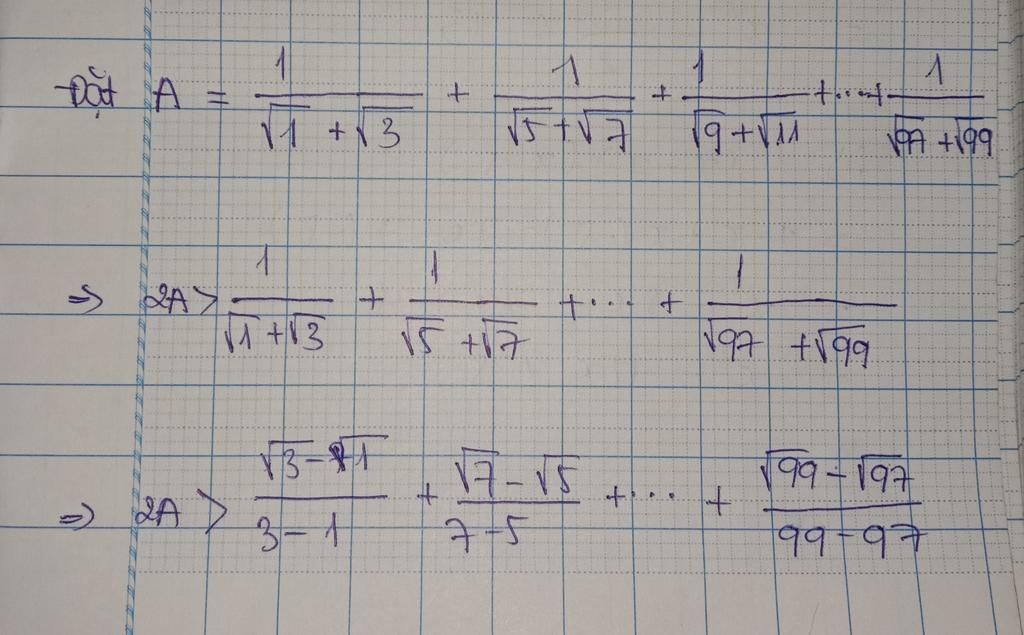 Đặt A = 1/(√1 + √3) + 1/(√5 + √7) + 1/(√9 + √11) + ... + 1/(√97 + √99)
⇒ 2A > 1/(√1 + √3) + 1/(√5 + √7) + ... + 1/(√97 + √99)
⇒ 2A > (√3 - √1)/(3 - 1) + (√7 - √5)/(7 - 5) + ... + (√99 - √97)/(99 - 97)